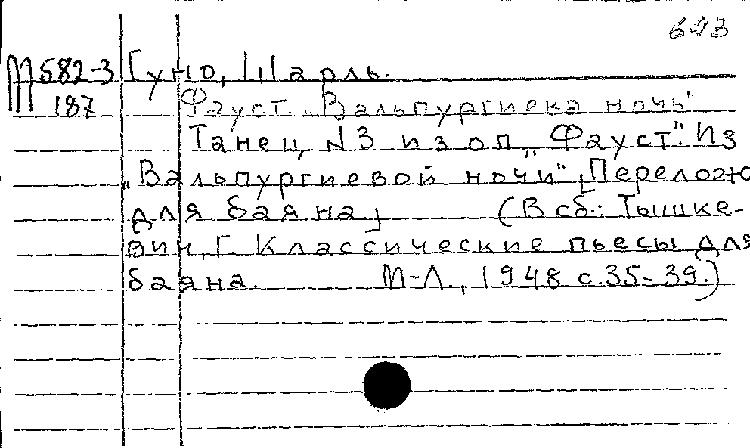 623
М582-3 Гуно, Шарль.
187 Фауст. Вальпургиева ночь
Танец N3 из оп. "Фауст". Из
"Вальпургиевой ночи", [Перелож.
для баяна] (В сб.: Тышке-
вич, Г. Классические пьесы для
баяна. М-Л., 1948 с. 35-39.)